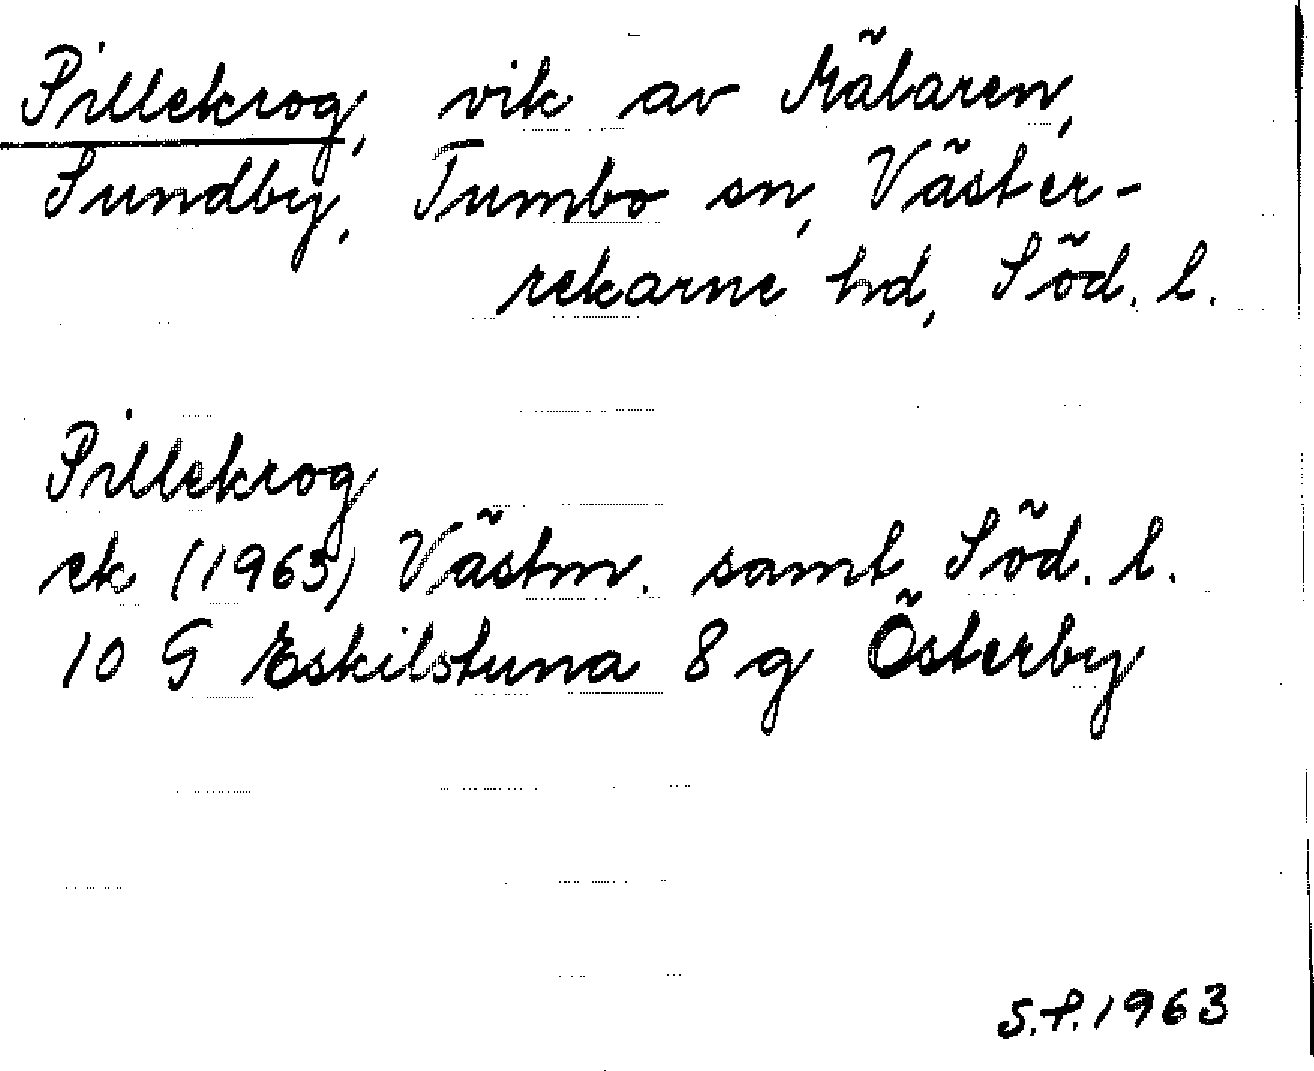 Pillekrog, vik av Mälaren,
Sundby, Tumbo sn, Väster-
rekarne hd, Söd. l.
Pillekrog
ek (1963) Västm. samt Söd. l.
10 G Eskilstuna 8 g Österby
S.P. 1963